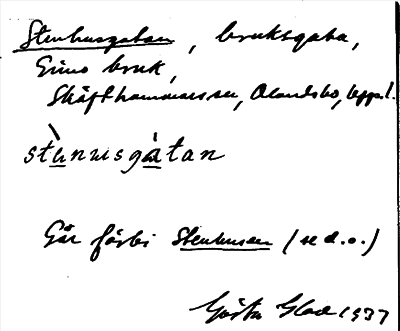 Stenhusgatan, bruksgata,
Gimo bruk,
Skäfthammars sn, Olands hd, Uppl.
stènusgàtan
Går förbi Stenhusen (se d.o.)
Gösta Glad 1937